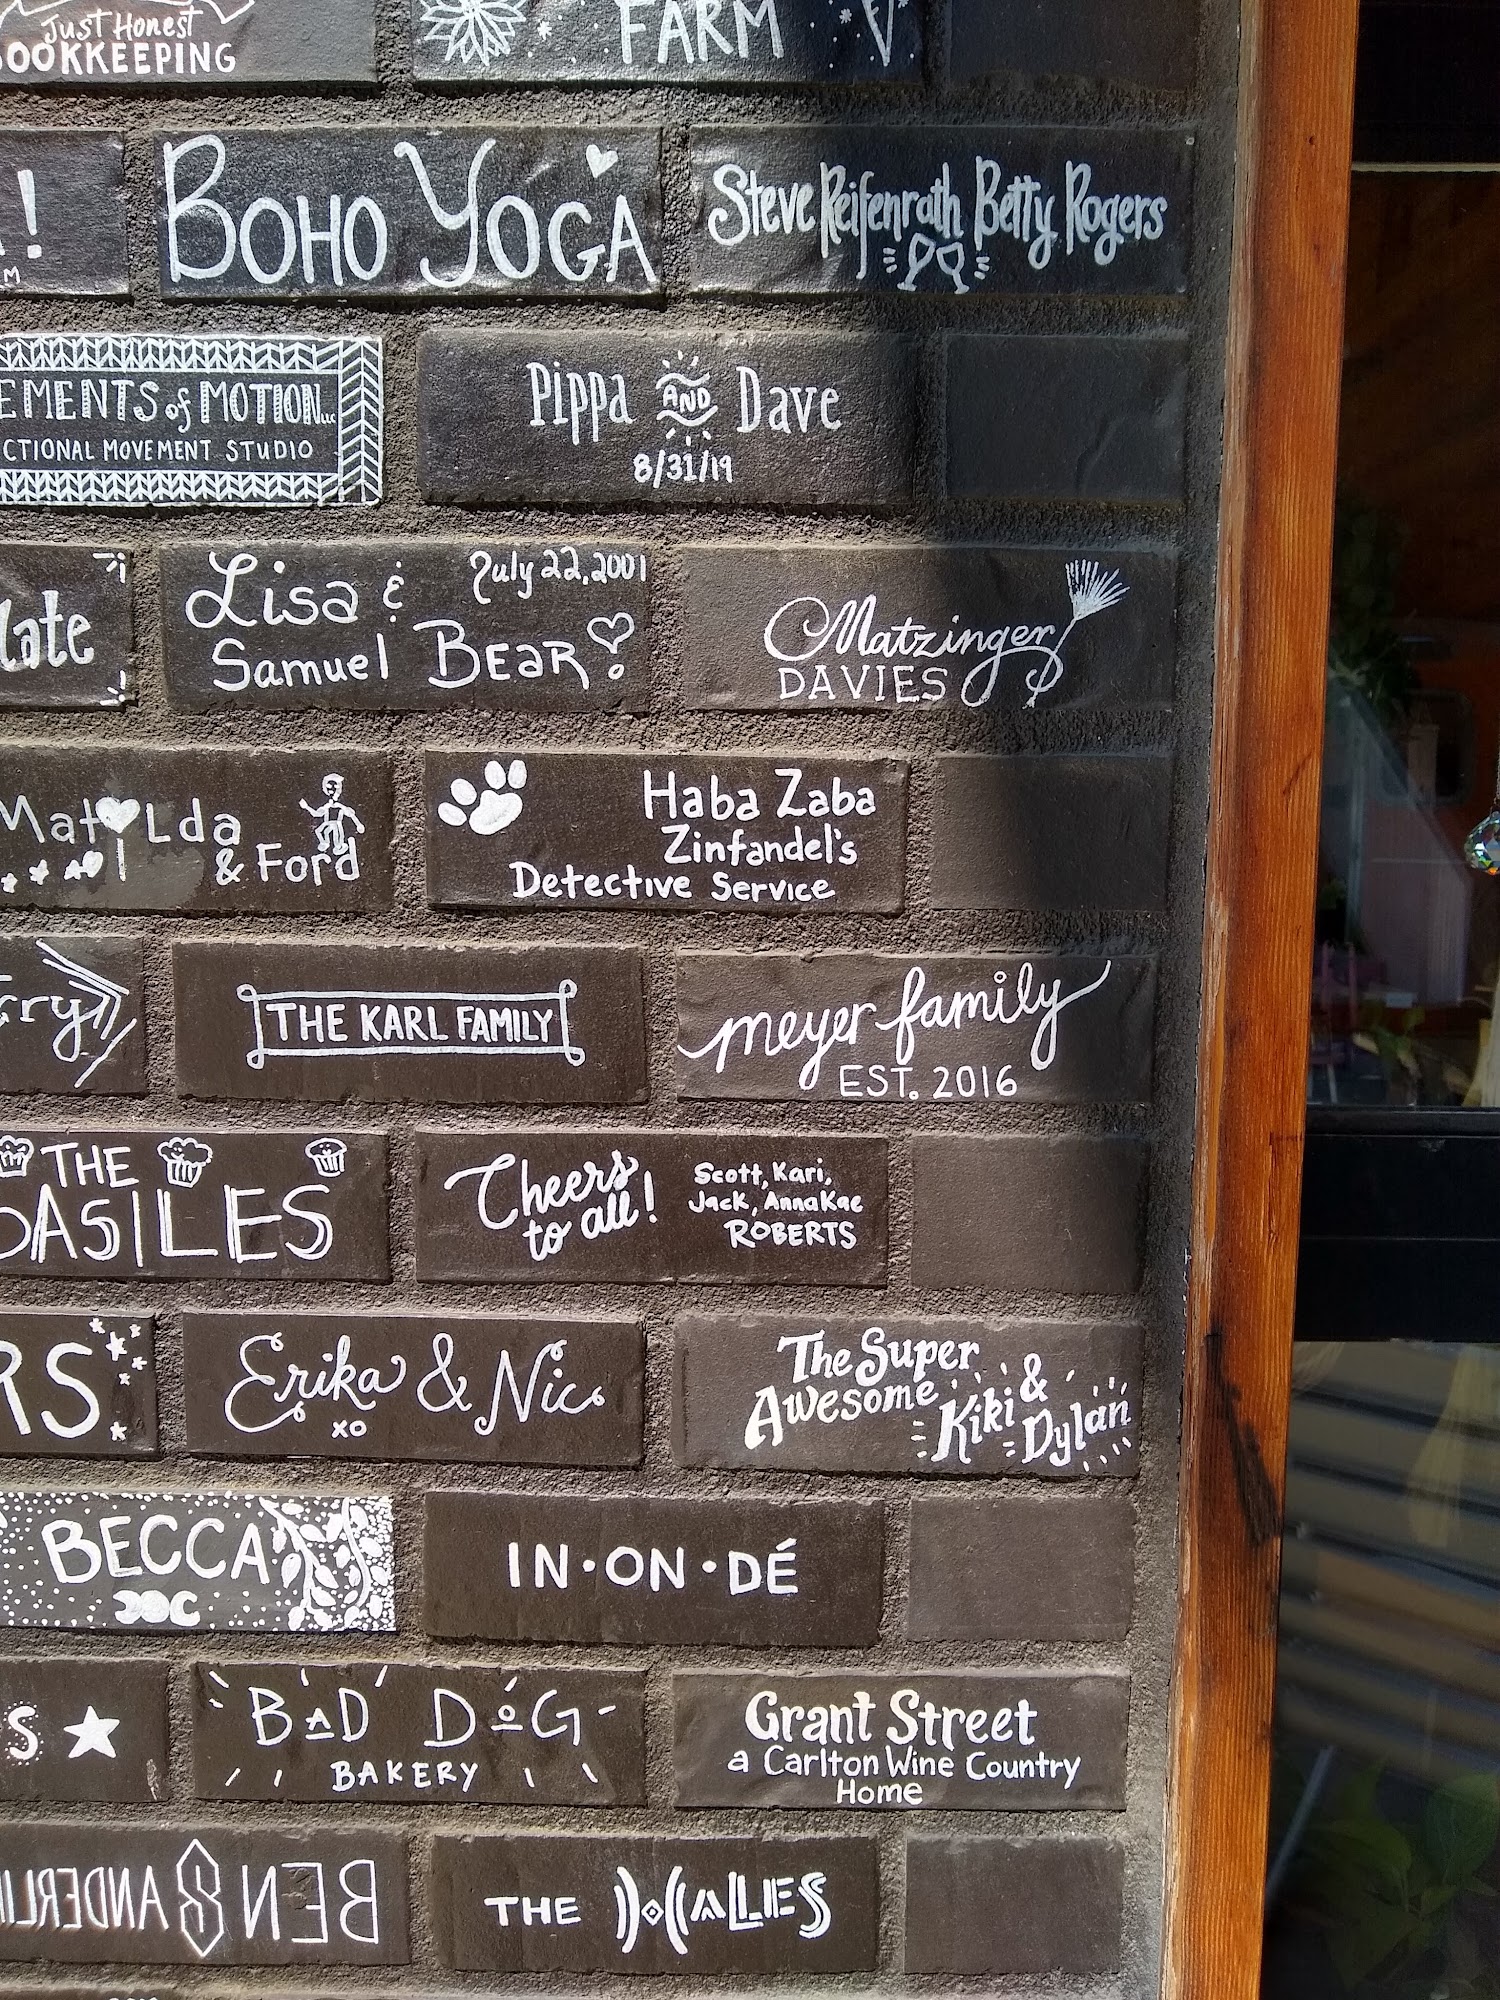 Just Honest
BOOKKEEPING
FARM
!
BOHO YOGA
Steve Reifenrath Betty Rogers
EMENTS of MOTION LLC
CTIONAL MOVEMENT STUDIO
Pippa AND Dave
8/31/19
Lisa &
July 22, 2001
Samuel BEAR
late
Matzinger
DAVIES
Matilda
& Ford
Haba Zaba
Zinfandel's
Detective Service
rry
THE KARL FAMILY
meyer family
EST. 2016
THE
ASILES
Cheers
to all!
Scott, Kari,
Jack, AnnaKae
ROBERTS
RS
Erika & Nic
xo
The Super
Awesome
Kiki &
Dylan
BECCA
IN·ON·DÉ
S
BAD DOG
BAKERY
Grant Street
a Carlton Wine Country
Home
BEN SANDERLIN
THE